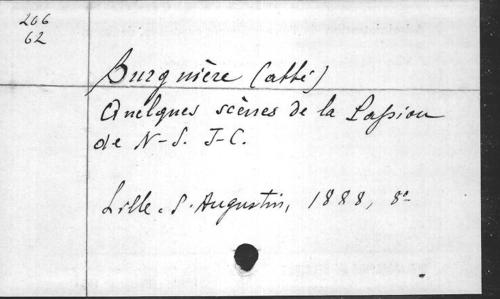 206
62
Burguière (abbé)
Quelques scènes de la Passion
de N-S. J-C.
Lille. S. Augustin, 1888, 8°